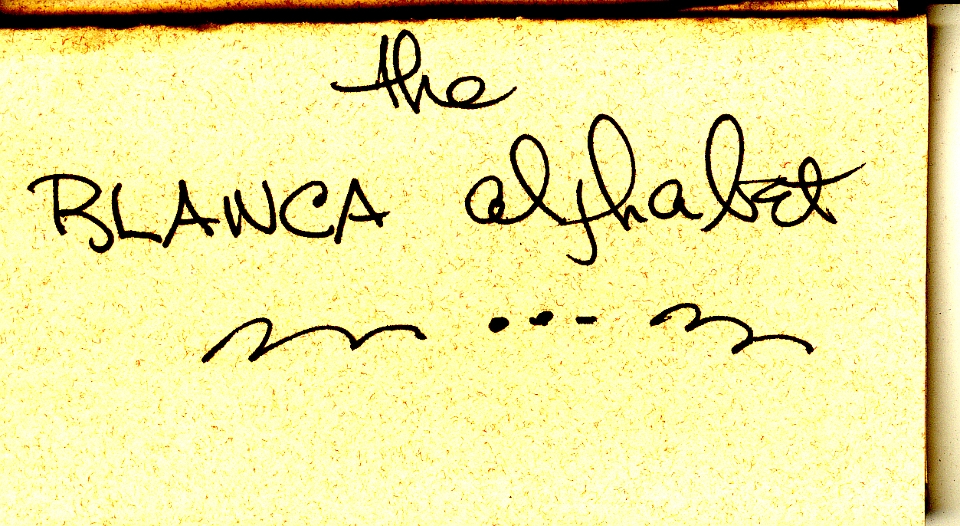 the
BLANCA alphabet